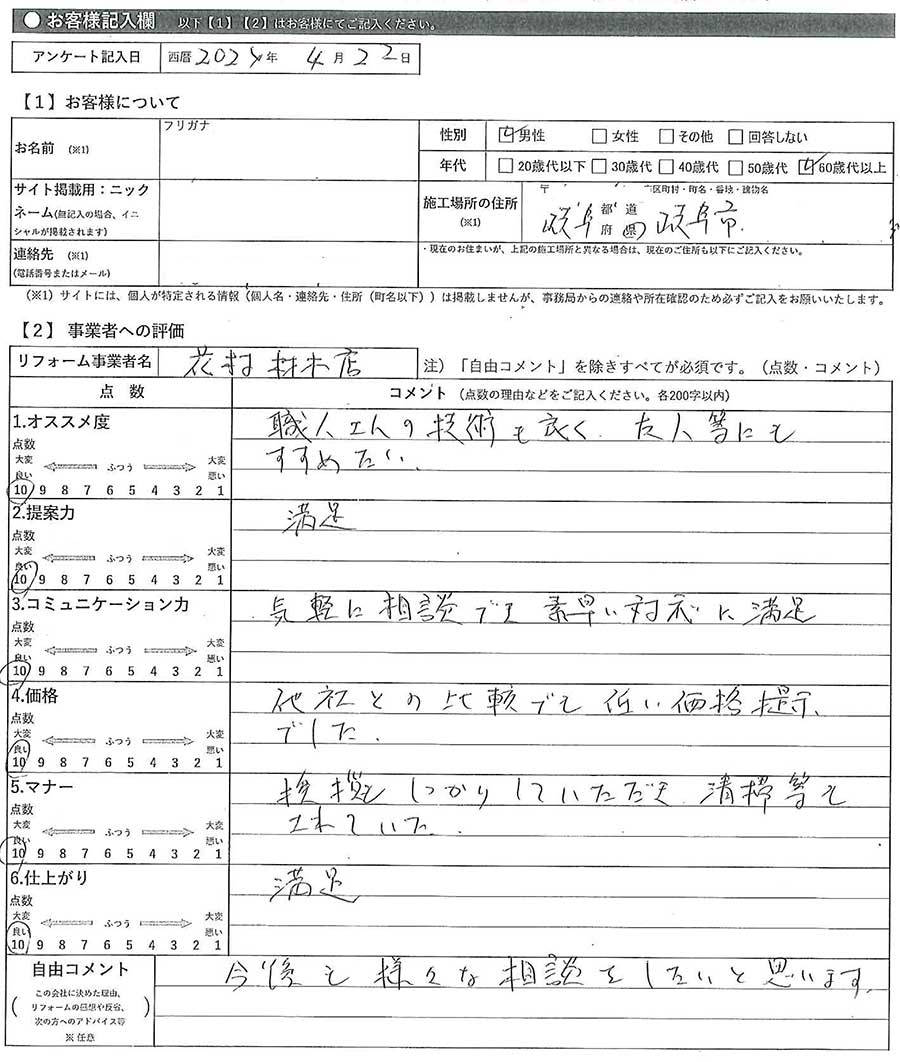 ● お客様記入欄 以下【1】【2】はお客様にてご記入ください。
アンケート記入日 西暦 2024年 4月 22日
【1】お客様について
お名前 (※1) フリガナ
性別 ☑男性 □女性 □その他 □回答しない
年代 □20歳代以下 □30歳代 □40歳代 □50歳代 ☑60歳代以上
サイト掲載用：ニック
ネーム(無記入の場合、イニ
シャルが掲載されます)
施工場所の住所
(※1)
〒 市区町村・町名・番地・建物名
岐阜 都道府県 岐阜市
連絡先 (※1)
(電話番号またはメール)
・現在のお住まいが、上記の施工場所と異なる場合は、現在のご住所も以下にご記入ください。
(※1) サイトには、個人が特定される情報（個人名・連絡先・住所（町名以下））は掲載しませんが、事務局からの連絡や所在確認のため必ずご記入をお願いいたします。
【2】事業者への評価
リフォーム事業者名 花村材木店 注）「自由コメント」を除きすべてが必須です。（点数・コメント）
点 数 コメント （点数の理由などをご記入ください。各200字以内）
1.オススメ度
点数
大変良い ふつう 大変悪い
10 9 8 7 6 5 4 3 2 1
職人さんの技術も良く、友人等にも
すすめたい。
2.提案力
点数
大変良い ふつう 大変悪い
10 9 8 7 6 5 4 3 2 1
満足
3.コミュニケーション力
点数
大変良い ふつう 大変悪い
10 9 8 7 6 5 4 3 2 1
気軽に相談でき 素早い対応に満足
4.価格
点数
大変良い ふつう 大変悪い
10 9 8 7 6 5 4 3 2 1
他社との比較でも低い価格提示
でした。
5.マナー
点数
大変良い ふつう 大変悪い
10 9 8 7 6 5 4 3 2 1
挨拶もしっかりしていただき、清掃等も
されていた。
6.仕上がり
点数
大変良い ふつう 大変悪い
10 9 8 7 6 5 4 3 2 1
満足
自由コメント
(この会社に決めた理由、
リフォームの感想や反省、
次の方へのアドバイス等)
※任意
今後も様々な相談をしたいと思います。